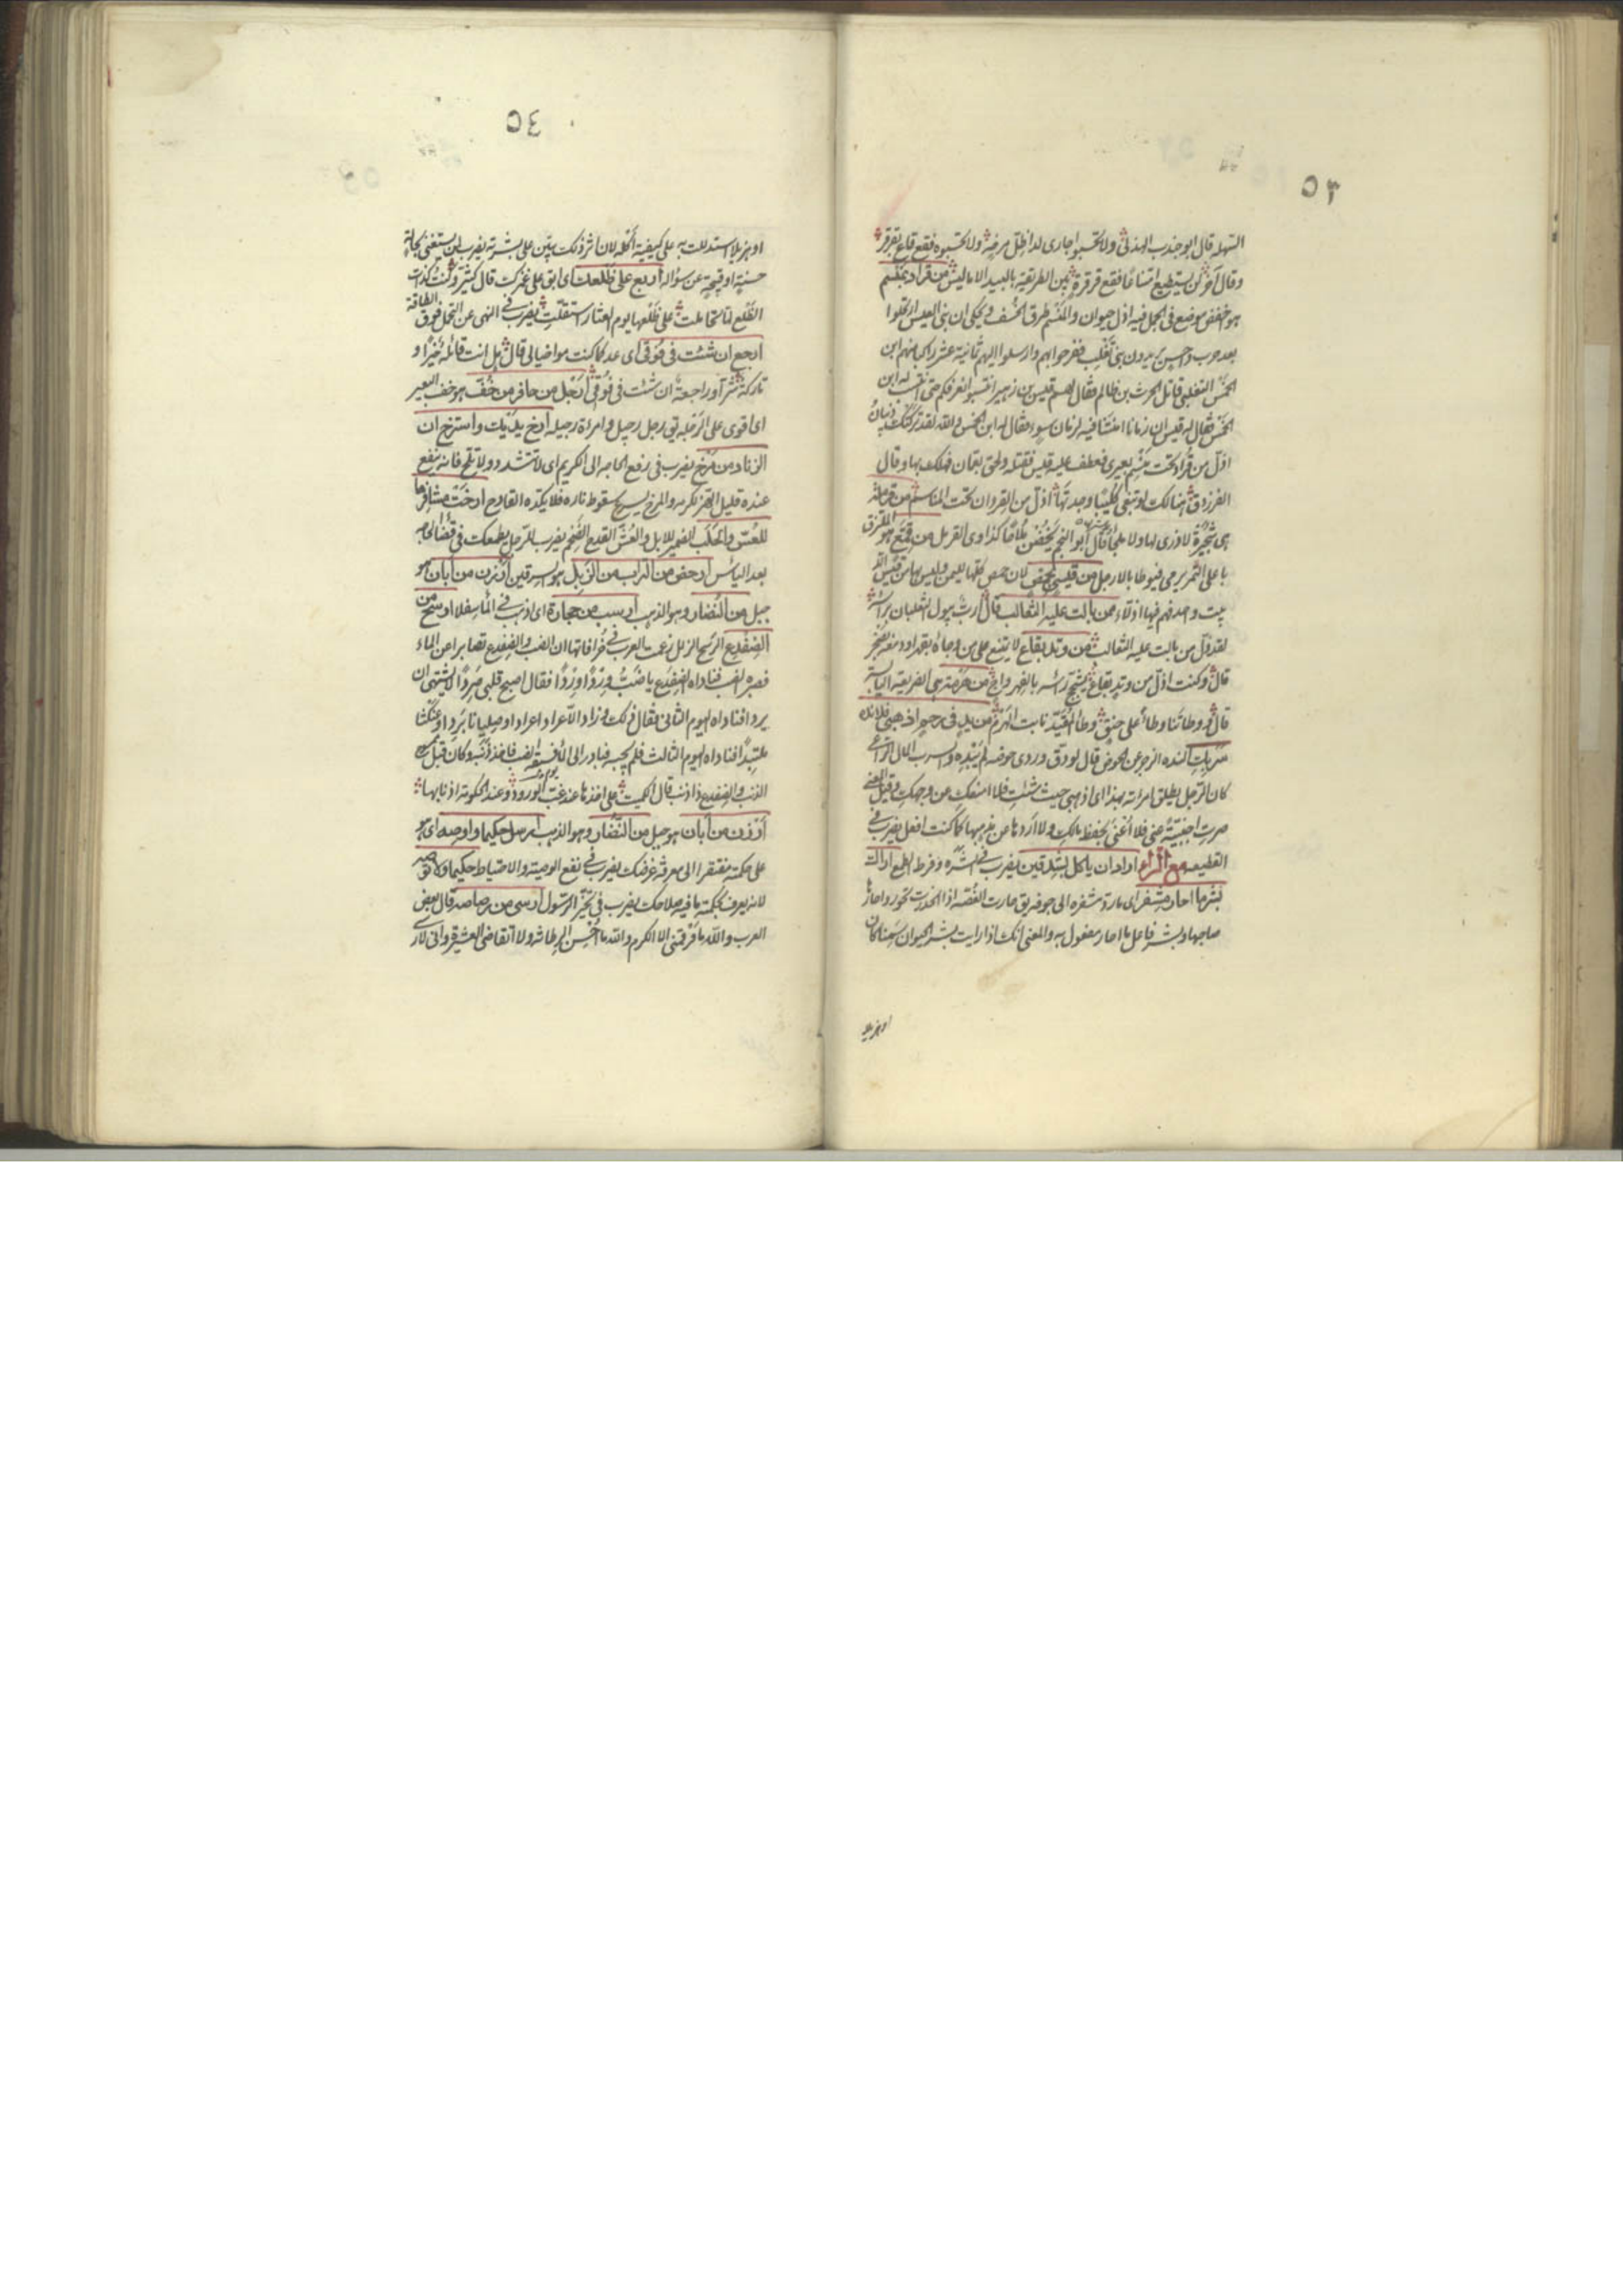 ٥٣
السهلة قال ابو جندب الهذلى ولا تحسبوا جارى لدا ظل مرخة ولا تحسبوه فقع قاع بقرقر
وقال آخر لن يستطيع امتناعا فقع قرقرة بين الطريقة بالبيد الاماليس من قراد بمنسم
هو اخفض موضع فى الجمل فيه اذل حيوان والمنسم طرف الخف ويحكى ان بنى العبس ارتحلوا
بعد حرب داحس يريدون بنى تغلب ففرحوا بهم وارسلوا اليهم ثمانية عشر راكبا منهم ابن
الخمس التغلبى قاتل الحرث بن ظالم فقال لهم قيس بن زهير انتسبوا نعرفكم حتى انتسب له ابن
الخمس فقال له قيس ان زمانا امنتنا فيه لزمان سوء فقال له ابن الخمس والله لقد تركتك ذبيان
اذل من قراد تحت منسم بعيرى فعطف عليه قيس فقتله ولحق بعمان فهلك بها وقال
الفرزدق هنالك لو تبغى كليبا وجدتها اذل من القردان تحت المناسم من قرملة
هى شجيرة لا ذرى لها ولا ملجأ قال ابو النجم يخضن ملاحا كذاوى القرمل من قمع هو الملتزق
باعلى التمر يرمى فيوطأ بالارجل من قيسى بحمص لان حمص كلها ليمن وليس بها من قيس الا
بيت واحد فهم فيها اذلاء ممن بالت عليه الثعالب قال ارب يبول الثعلبان براسه
لقد ذل من بالت عليه الثعالب من وتد بقاع لا يمتنع على من وجأه بقهر او دمغه بحجر
قال وكنت اذل من وتد بقاع يشجج راسه بالفهر واجى من هرمة هى الفريقة اليابسة
قال ووطئتنا وطأ على حنق وطأ المقيد نابت الهرم من يد فى رحم اذهبى فلا انده
سربك النده الزجر عن الحوض قال لو دق وردى حوضه لم ينده والسرب المال الراعى
كان الرجل يطلق امراته بهذا اى اذهبى حيث شئت فلا امنعك عن وجهك وقيل المعنى
صرت اجنبية منى فلا اعنى بحفظ مالك ولا اردها عن مذهبها كما كنت افعل يضرب فى
القطيعة مع الراء اراد ان ياكل بشدقين يضرب فى الشره وفرط الطمع اراك
بشر ما احار مشفر اى ما رد مشفره الى جوفه يق حارت الغصة اذا انحدرت تحور واحارها
صاحبها وبشر فاعل ما احار مفعول به والمعنى انك اذا رايت بشر الحيوان سمينا كان
او هزيلا
٥٤
او هزيلا استدللت به على كيفية اكله لان اثر ذلك يبين على بشرته يضرب لمن يستغنى بحالة
حسنة او قبيحة عن سؤاله اربع على ظلعك اى ابق على غمزك قال كثير وكنت كذات
الظلع لما تحاملت على ظلعها يوم العثار استقلت يضرب فى النهى عن التحمل فوق الطاقة
ارجع ان شئت فى فوقى اى عد كما كنت مواخيا لى قال هل انت قائلة خيرا و
تاركة شرا وراجعة ان شئت فى فوقى ارجل من حافر من خف هو خف البعير
اى اقوى على الرجلة يق رجل رجيل وامراة رجيلة ارخ يديك واسترخ ان
الزناد من مرخ يضرب فى رفع الحاجة الى الكريم اى لا تتشدد ولا تلح فانه ينفع
عنده قليل الهز لكرمه والمرخ يسرع سقوط ناره فلا يكده القادح ارخت مشافرها
للعس والحلب الضمير للابل والعس القدح الضخم يضرب للرجل يطمعك فى قضاء الحاجة
بعد الياس ارخص من التراب من الزبل هو السرقين ارزن من ابان هو
جبل من النضار وهو الذهب ارسب من حجارة اى اذهب فى الماء سفلا ارسح من
الضفدع الرسح الزلل زعمت العرب فى خرافاتها ان الضب والضفدع تصابرا من الماء
فصبر الضب فناداه الضفدع يا ضب وردا وردا فقال اصبح قلبى صردا لا يشتهى ان
يردا فناداه اليوم الثانى فقال ذلك وزاد الا عرادا عردا وصليانا بردا وعنكثا
ملتبدا فناداه اليوم الثالث فلم يجبه فبادر الى الماء فتبعه الضب فاخذ ذنبه وكان قبل ممسوح
الذنب والضفدع ذا ذنب قال الكميت على اخذها عند غب الورود وعند الحكومة اذنابها
ارزن من ابان هو جبل من النضار وهو الذهب ارسل حكيما واوصه اى هو
على حكمته مفتقر الى معرفة غرضك يضرب فى نفع الوصية والاحتياط حكيما ولا توصه
لانه يعرف بحكمته ما فيه صلاحك يضرب فى تخير الرسول ارسى من رصاصة قال بعض
العرب والله ما قرقمنى الا الكرم والله ما احسن الرطانة ولا اتقاضى العشيرة وانى لارسى